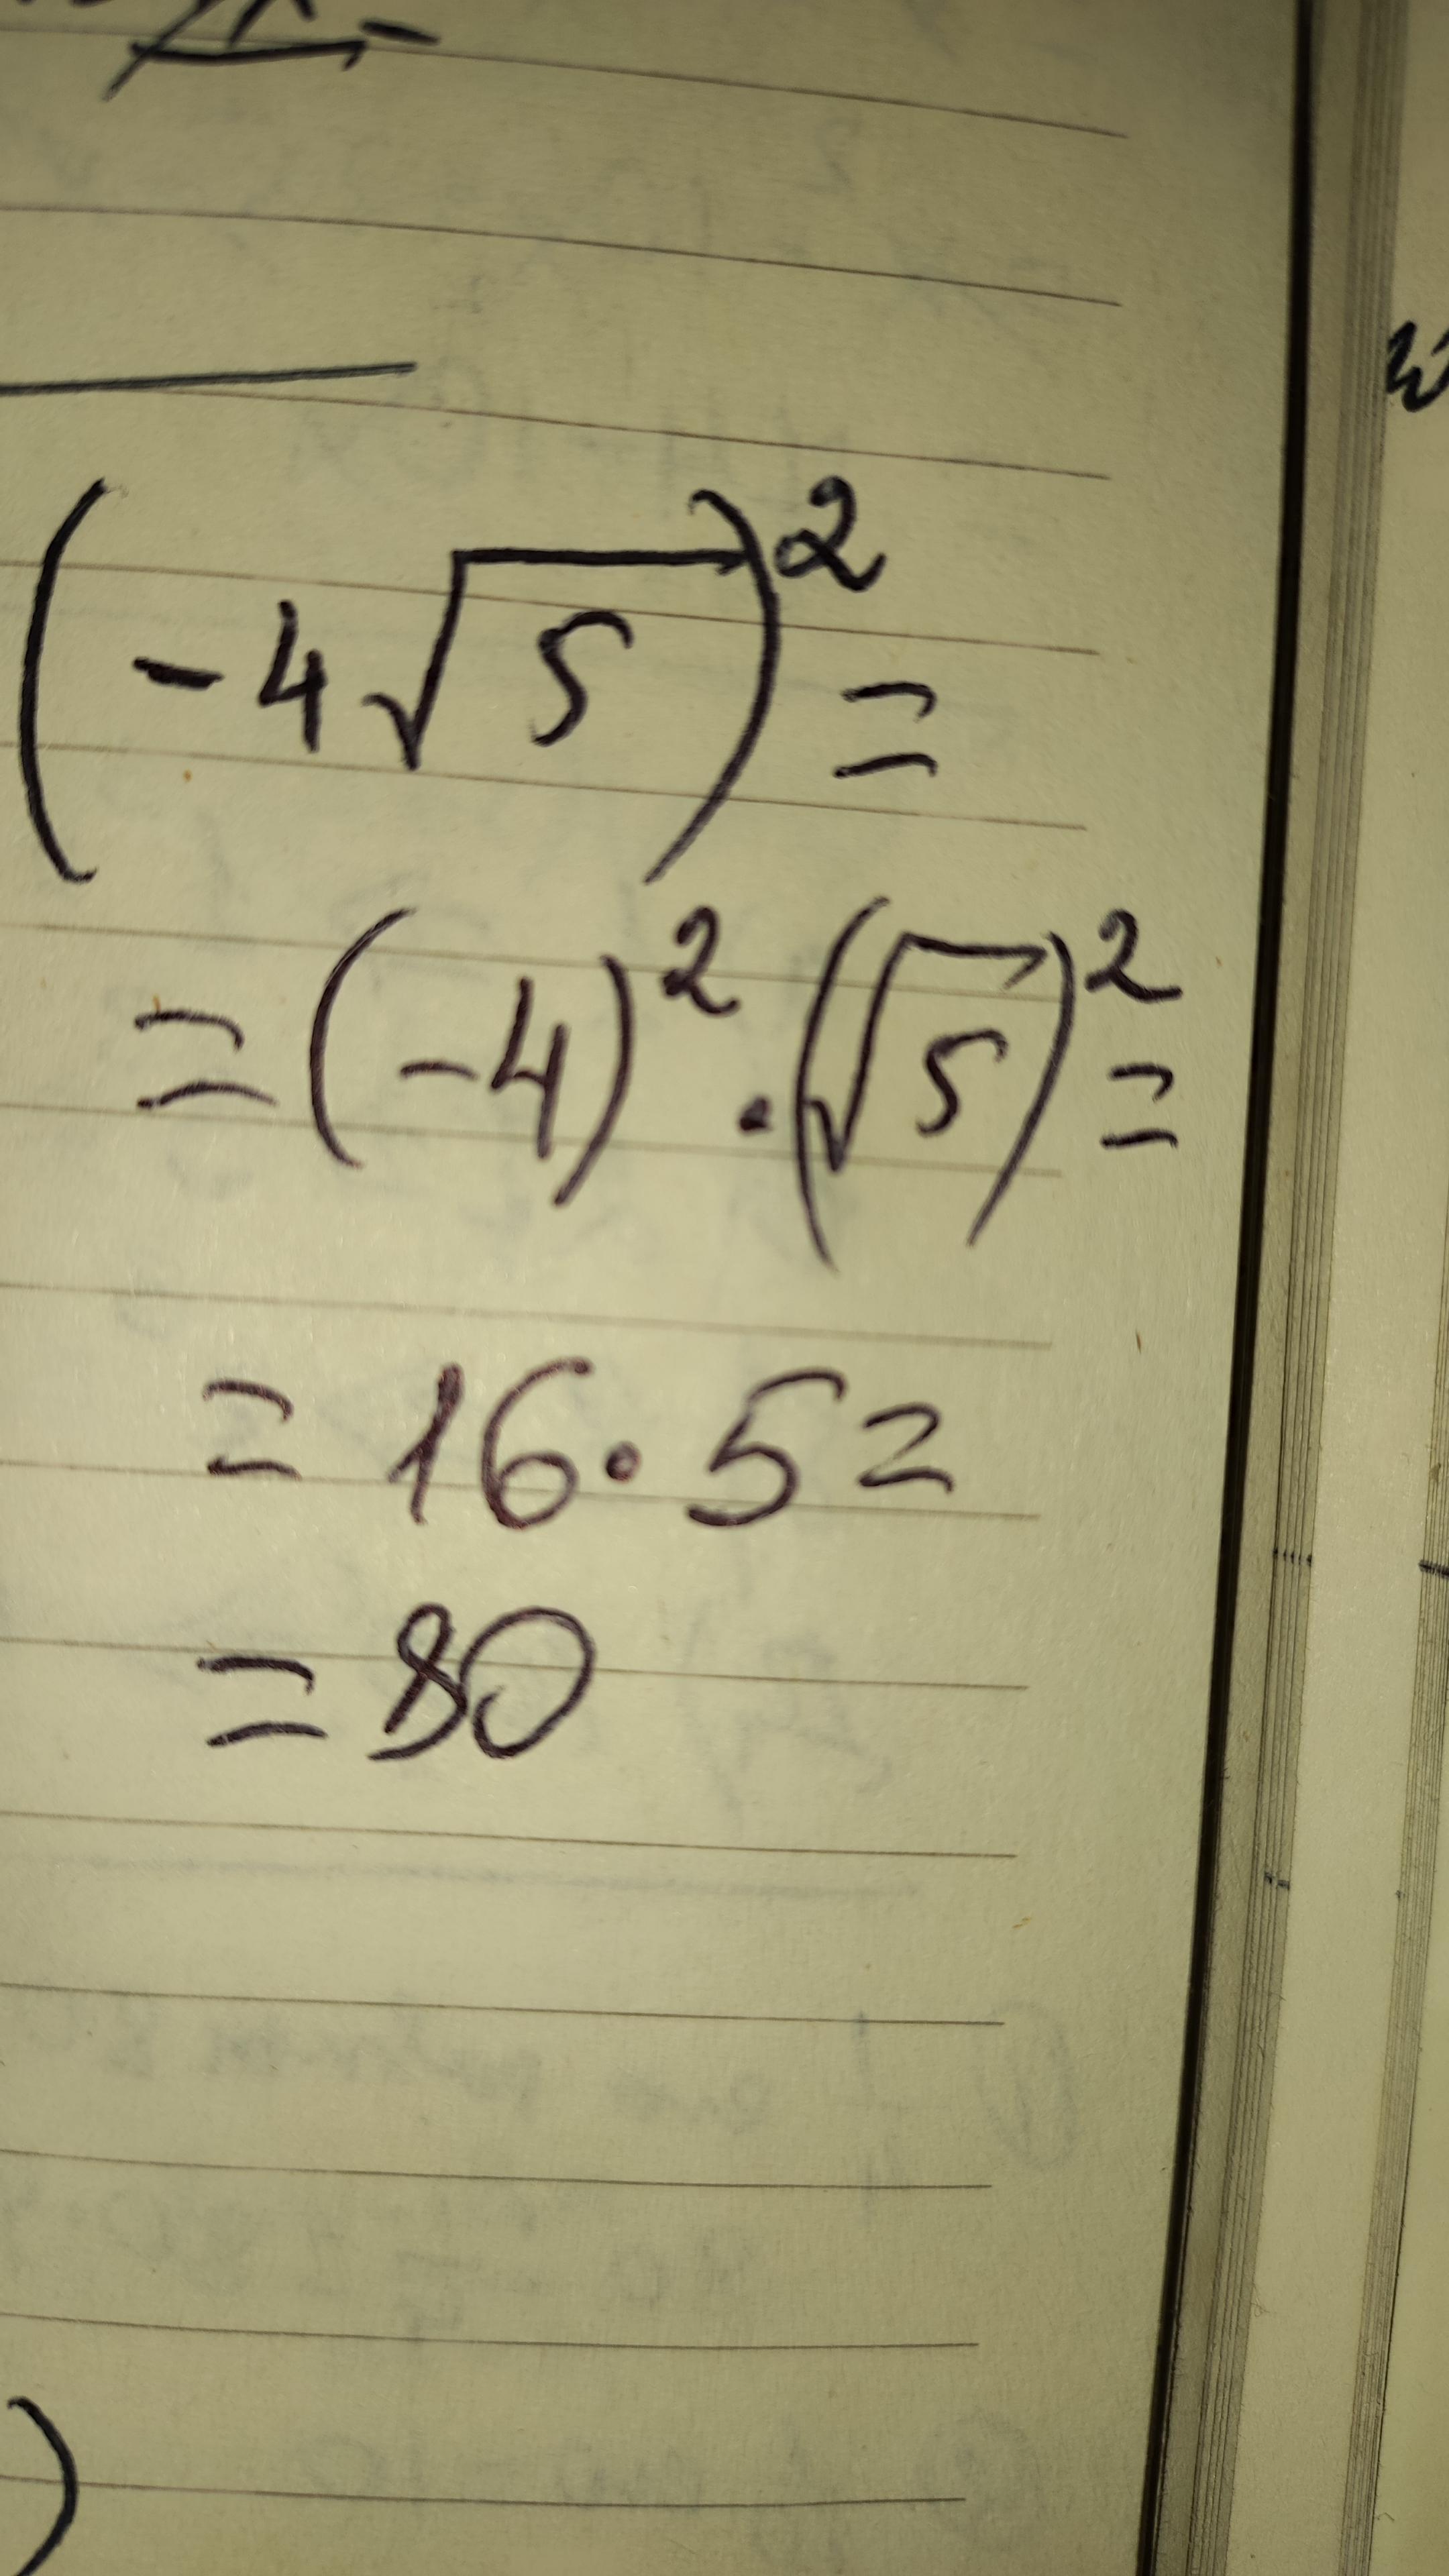 (-4√5)² =
= (-4)² · (√5)² =
= 16 · 5 =
= 80